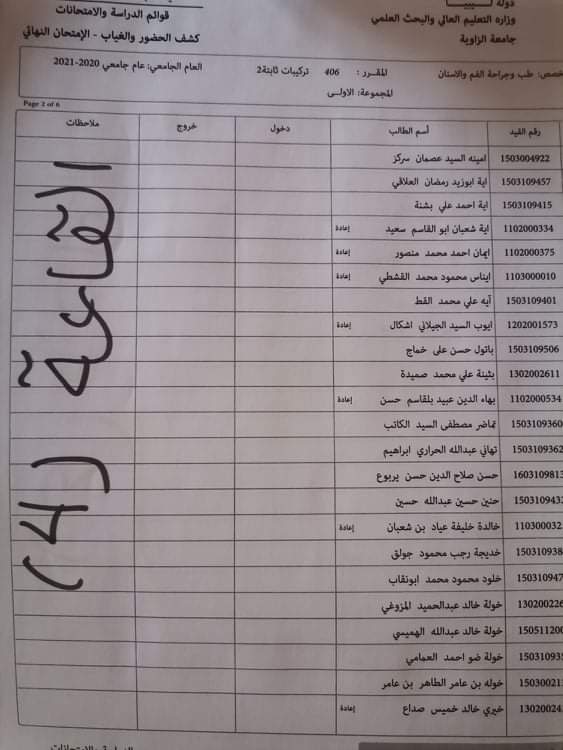 دولة ليبيا
وزارة التعليم العالي والبحث العلمي
جامعة الزاوية
قوائم الدراسة والامتحانات
كشف الحضور والغياب - الإمتحان النهائي
خصص: طب وجراحة الفم والاسنان المقـرر : 406 تركيبات ثابتة2 العام الجامعي: عام جامعي 2020-2021
المجموعة: الاولى
Page 2 of 6
رقم القيد أسم الطالب دخول خروج ملاحظات
1503004922 امينه السيد عصمان سركز
1503109457 اية ابوزيد رمضان العلاقي
1503109415 اية احمد علي بشنة
1102000334 اية شعبان ابو القاسم سعيد إعادة
1102000375 ايمان احمد محمد منصور إعادة
1103000010 ايناس محمود محمد القشطي إعادة
1503109401 آيه علي محمد القط
1202001573 ايوب السيد الجيلاني اشكال إعادة
1503109506 باتول حسن على خماج
1302002611 بثينة علي محمد صميدة
1102000534 بهاء الدين عبيد بلقاسم حسن إعادة
1503109360 تماضر مصطفى السيد الكاتب
1503109362 تهاني عبدالله الحراري ابراهيم
1603109813 حسن صلاح الدين حسن يربوع
150310943 حنين حسين عبدالله حسين
110300032 خالدة خليفة عياد بن شعبان إعادة
150310938 خديجة رجب محمود جولق
150310947 خلود محمود محمد ابونقاب
130200226 خولة خالد عبدالحميد المزوغي
150511200 خولة خالد عبدالله الهميسي
150310935 خولة ضو احمد العمامي
150300021 خوله بن عامر الطاهر بن عامر
13020024 خيري خالد خميس صداع إعادة
القاعة (4)